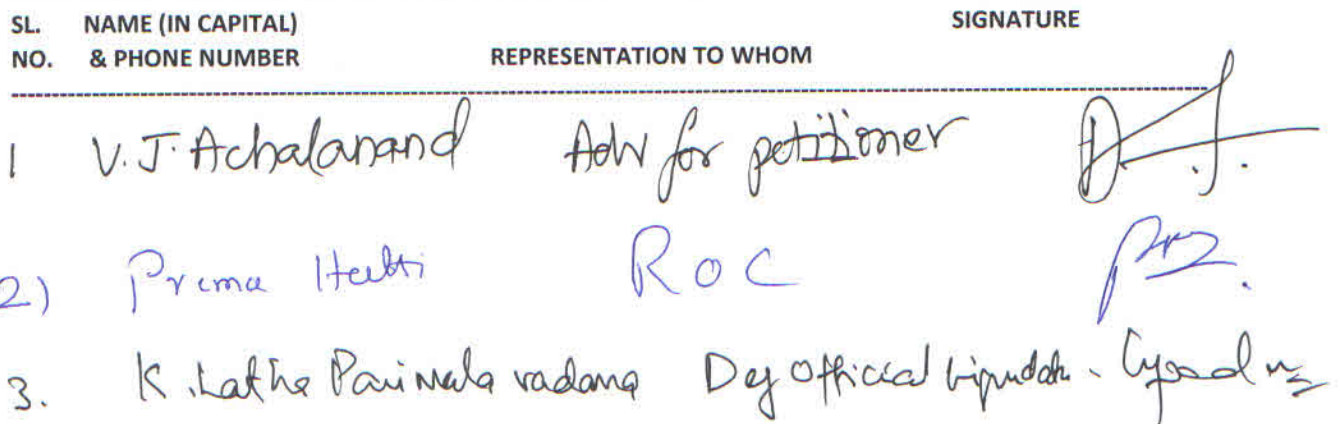 SL. NAME (IN CAPITAL) SIGNATURE
NO. & PHONE NUMBER REPRESENTATION TO WHOM
1 V.J. Achalanand Adv for petitioner
2) Prema Hatti ROC
3. K. Latha Parimala vadana Dy Official Liquidator